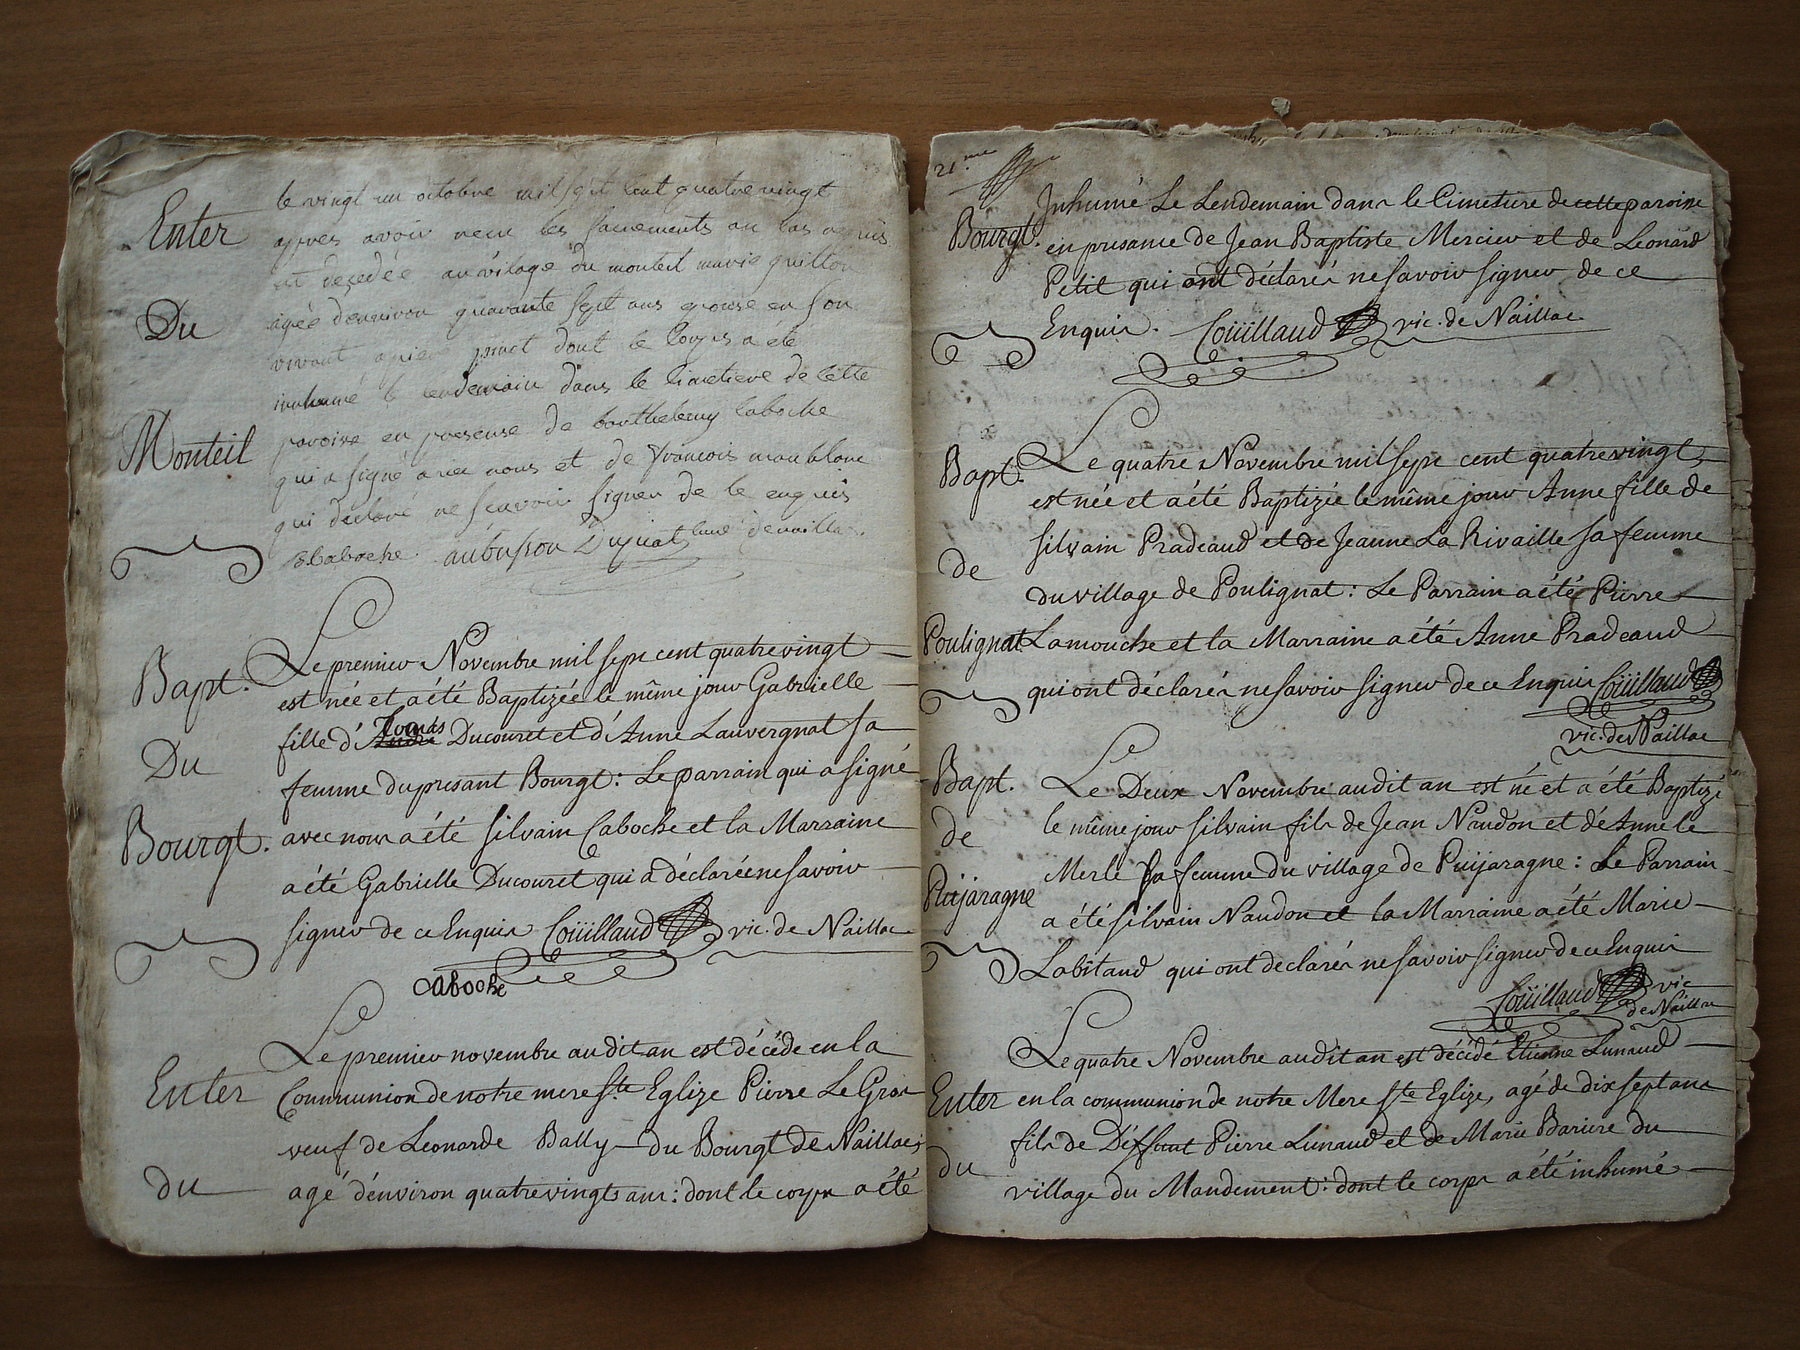 Enter
Du
Monteil
le vingt un octobre mil sept cent quatre vingt
appres avoir receu les sacrements
est decedée au vilage du monteil marie guillon
agée denviron quarante sept ans epouse en son
vivant dont le corps a été
inhumé le lendemain dans le cimetiere de cette
paroisse en presense de barthelemy laboche
qui a signé avec nous et de francois maublanc
qui declaré ne scavoir signer de ce enquis
Blaboche. aubusson Dujnat curé denaillac
Bapt.
Du
Bourgt.
Le premier Novembre mil sept cent quatrevingt
est née et a été Baptizée le même jour Gabrielle
fille d'André Tomas Ducouret et d'Anne Lauvergnat sa
femme du présant Bourgt: Le parrain qui a signé
avec nous a été silvain Caboche et la Marraine
a été Gabrielle Ducouret qui a déclarée ne savoir
signer de ce Enquis Coüillaud vic. de Naillac
Caboche
Enter
du
Le premier novembre audit an est décédé en la
Communion de notre mere Ste Eglize Pierre Le Gros
veuf de Leonarde Bally du Bourgt de Naillac;
agé d'énviron quatrevingts ans: dont le corps a été
21.me
Bourgt.
Inhumé Le Lendemain dans le Cimetiere de cette paroisse
en présance de Jean Baptiste Mercier et de Léonard
Petit qui ont déclarés ne savoir signer de ce
Enquis. Coüillaud vic. de Naillac
Bapt.
de
Poulignat
Le quatre Novembre mil sept cent quatrevingt,
est née et a été Baptizée le même jour Anne fille de
silvain Pradeaud et de Jeanne La Rivaille sa femme
du village de Poulignat: Le Parrain a été Pierre
Lamouche et la Marraine a été Anne Pradeaud
qui ont déclarés ne savoir signer de ce Enquis Coüillaud
vic. de Naillac
Bapt.
de
Puijaragne
Le Deux Novembre audit an est né et a été Baptizé
le même jour silvain fils de Jean Naudon et d'Anne le
Merle sa femme du village de Puijaragne: Le Parrain
a été silvain Naudon et la Marraine a été Marie
Labitaud qui ont declarés ne savoir signer de ce Enquis
Coüillaud vic
de Naillac
Enter
du
Le quatre Novembre audit an est décédé Etienne Lunaud
en la communion de notre Mere Ste Eglize, agé de dix sept ans
fils de Déffunt Pierre Lunaud et de Marie Bariere du
village du Mandement: dont le corps a été inhumé